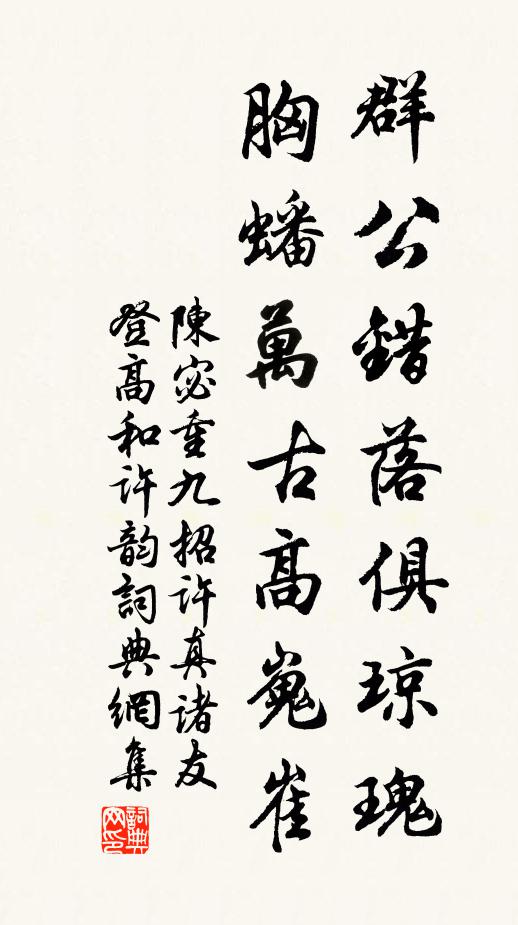 群公錯落俱琼瑰
胸蟠萬古高嵬崔
陳宓重九招許真諸友
登高和許韵詞典網集
詞典网印